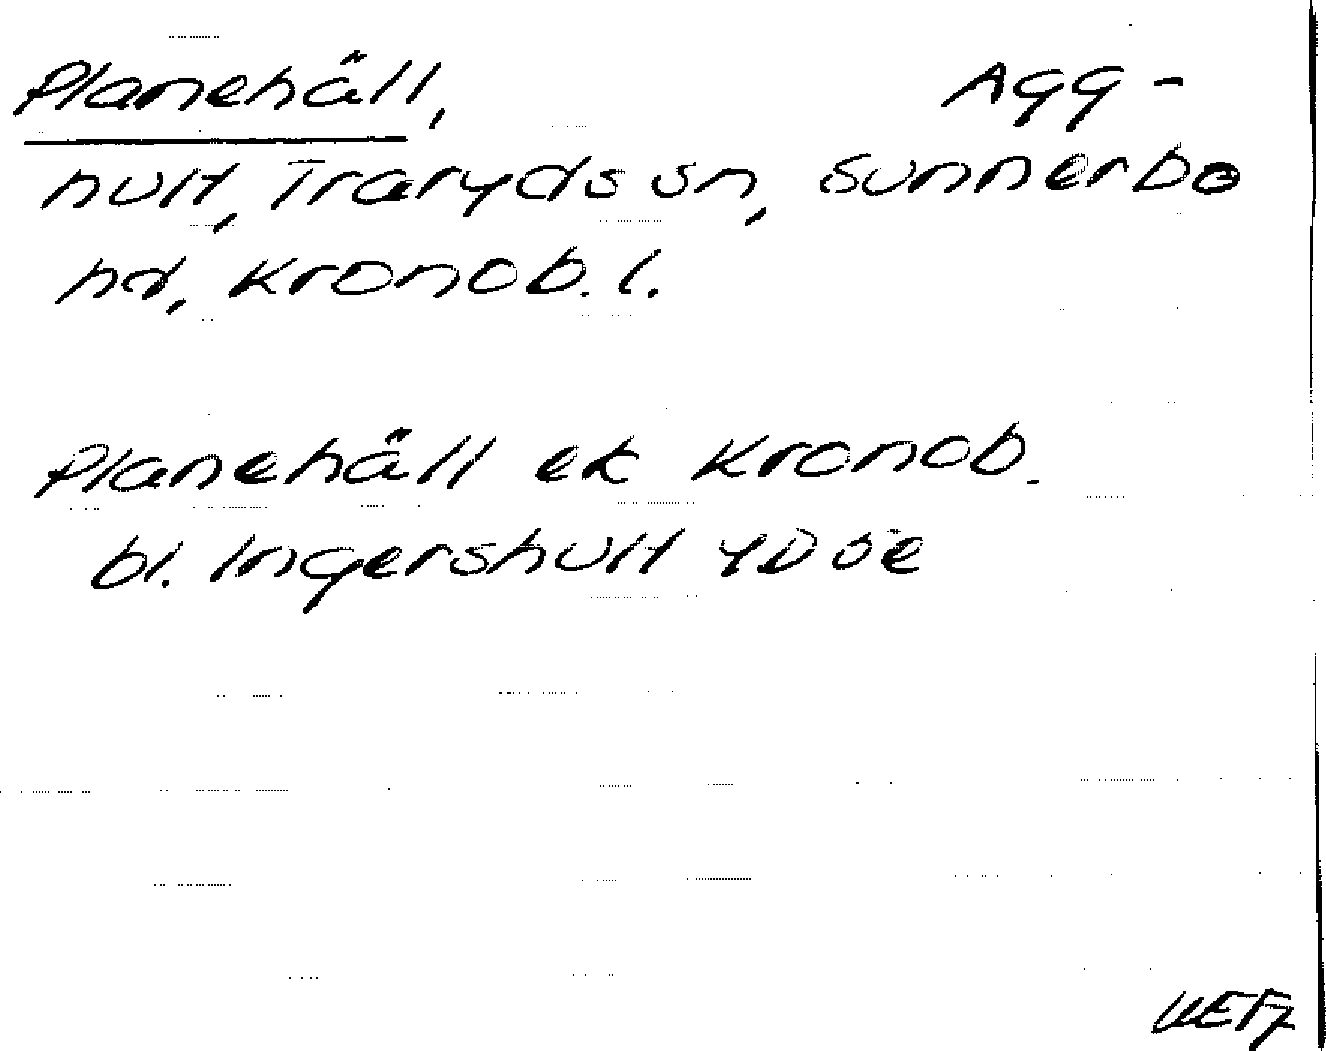 Planehäll, Agg-
hult, Traryds sn, Sunnerbo
hd, Kronob. l.
Planehäll ek Kronob.
bl. Ingershult 4D 5e